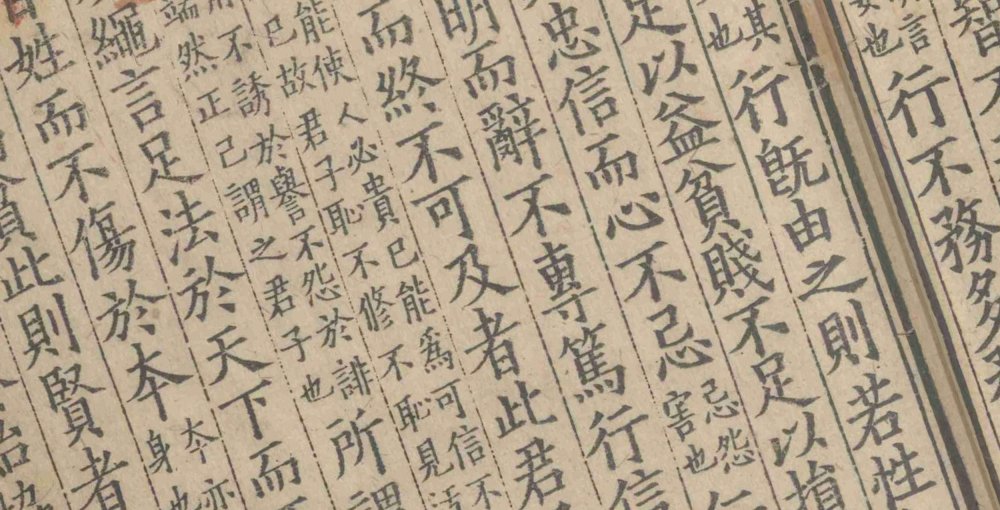 智
言
也
行不務多
其
也
行旣由之則若性
足以益貧賤不足以損
忠信而心不忌
忌怨
害也
明而辭不專篤行信
而終不可及者此君
能使人必貴己能爲可信不
已故君子恥不修不恥見
不誘於譽不怨於誹
端然正己謂之君子也
所謂
繩言足法於天下而
姓而不傷於本
本亦
身也
此則賢者